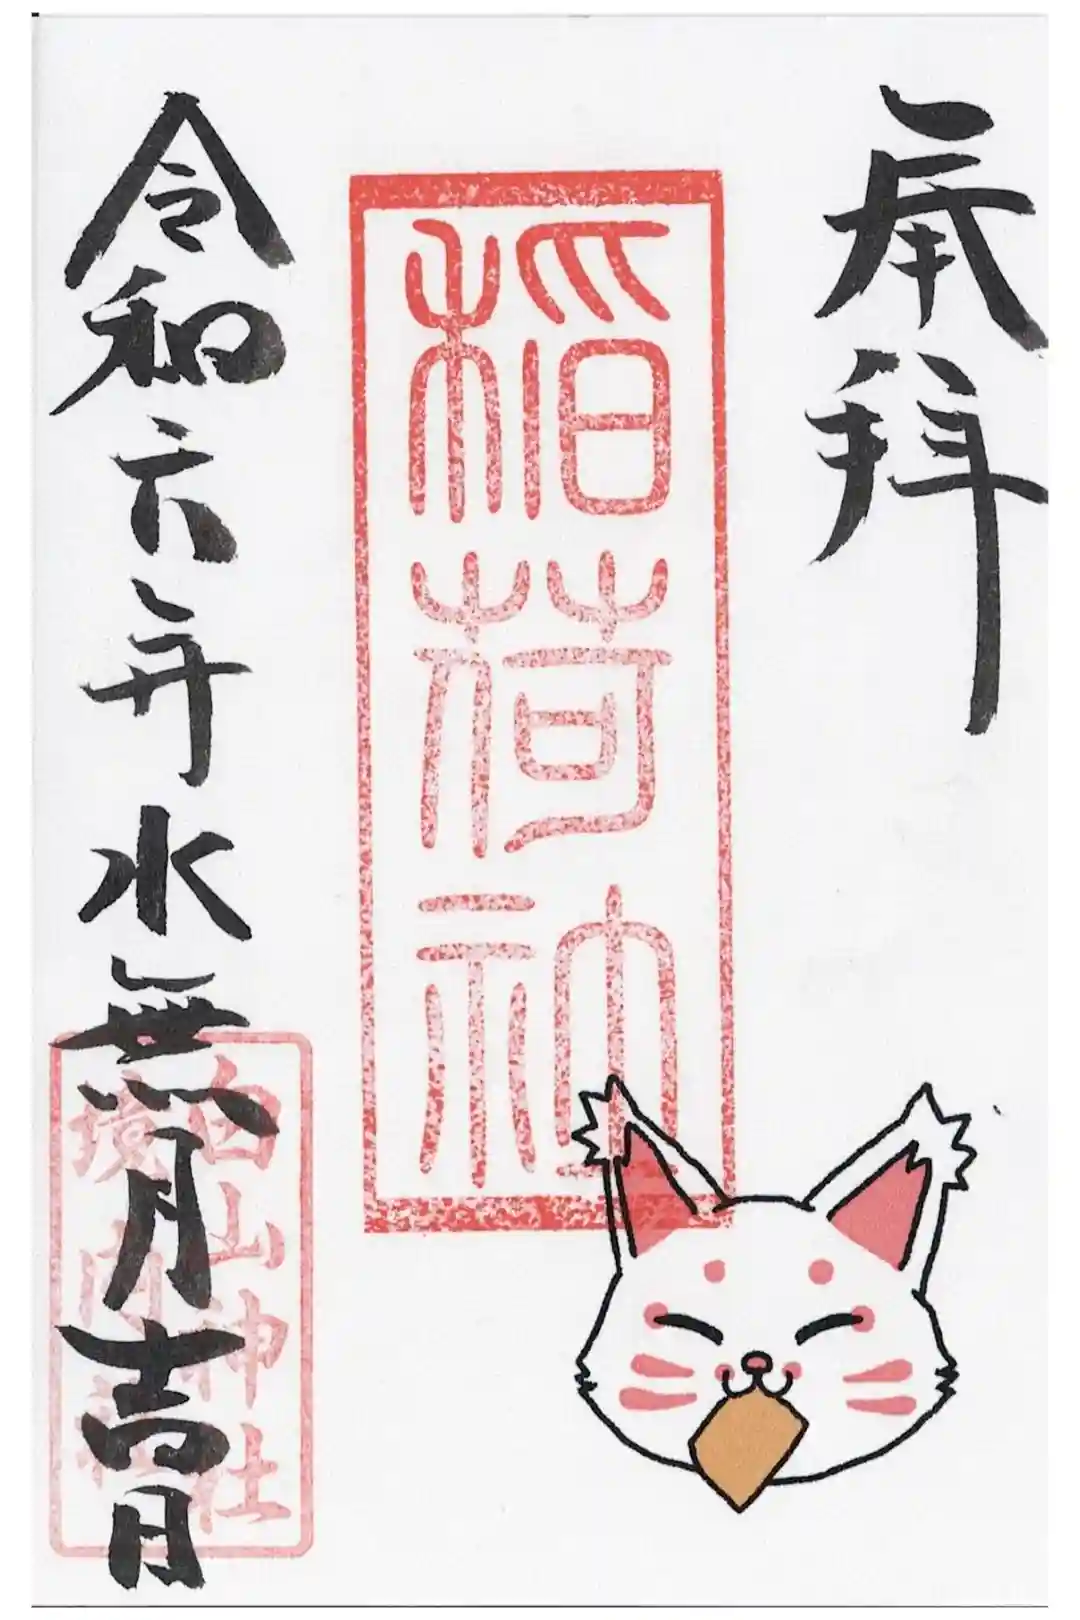 奉拝
稲荷社
令和六年水無月吉日
白山神社
境内社